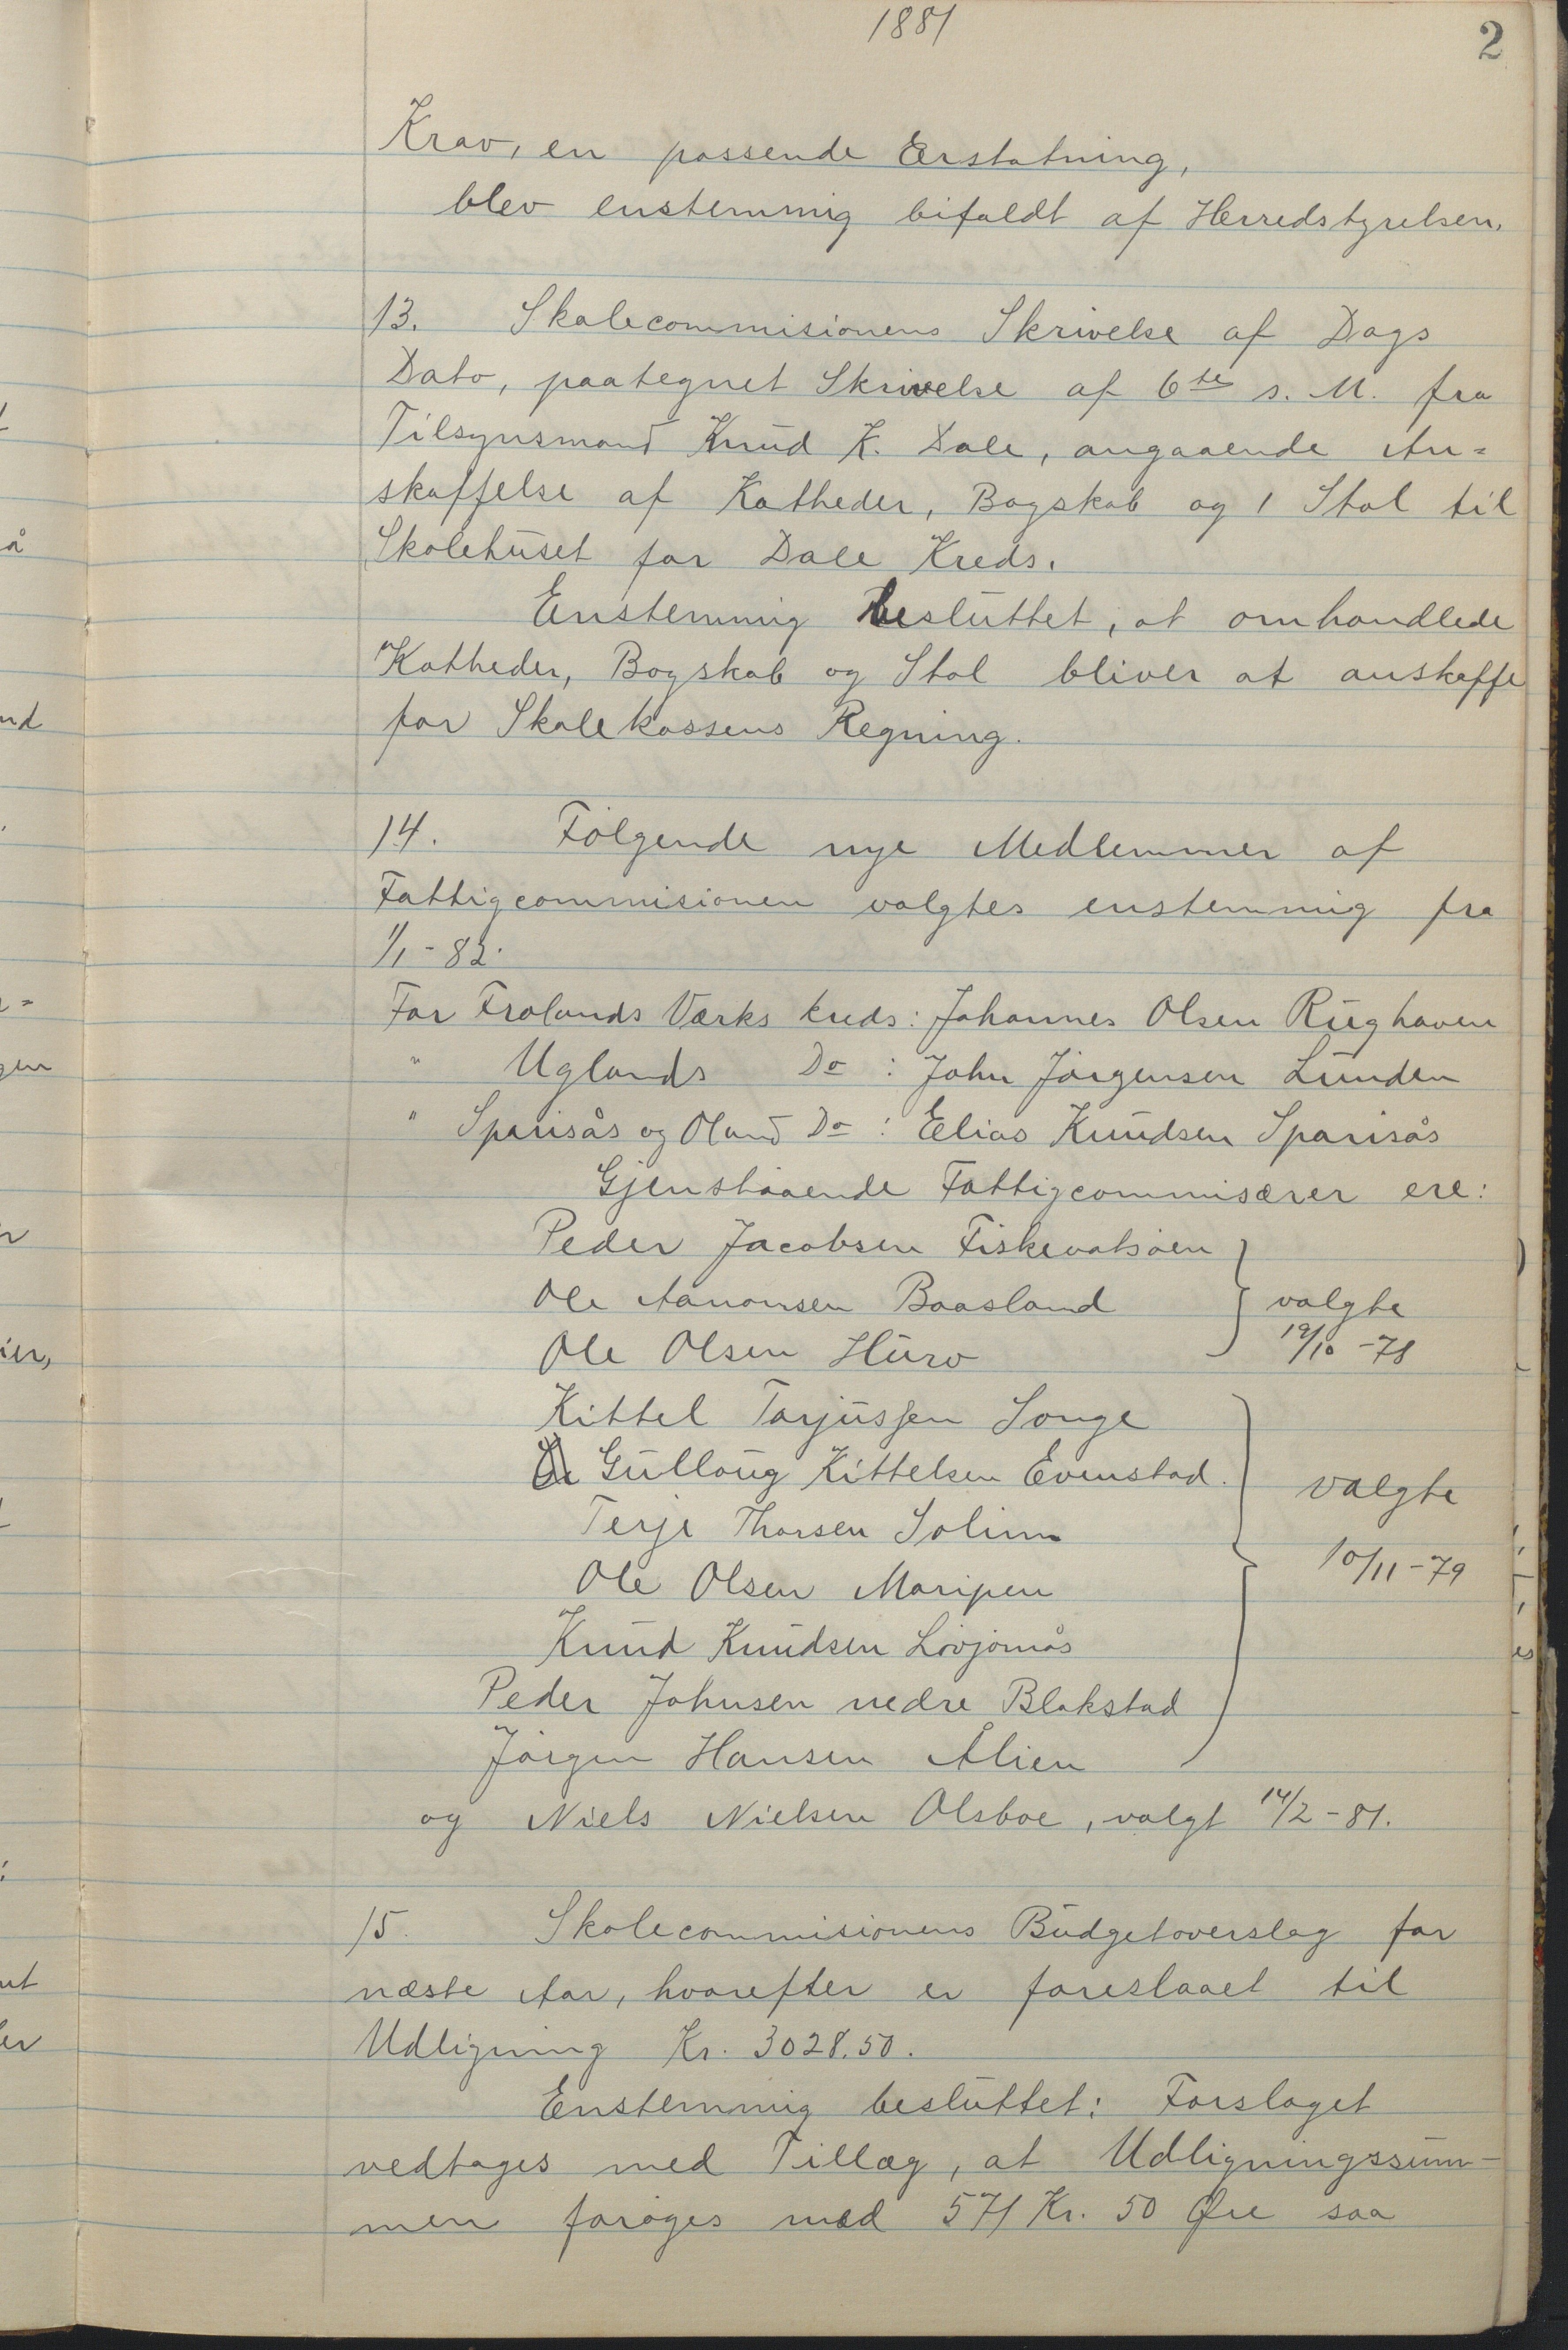 1881
2
Krav, en passende Erstatning,
blev enstemmig bifaldt af Herredstyrelsen.
13. Skolecommisionens Skrivelse af Dags
Dato, paategnet Skrivelse af 6te s. M. fra
Tilsynsmand Knud K. Dale, angaaende An=
skaffelse af Katheder, Bogskab og 1 Stol til
Skolehuset for Dale Kreds.
Enstemmig besluttet, at omhandlede
Katheder, Bogskab og Stol bliver at anskaffe
for Skolekassens Regning.
14. Følgende nye Medlemmer af
Fattigcommisionen valgtes enstemmig fra
1/1-82.
For Frolands Værks kreds: Johannes Olsen Rüghaven
" Uglands Do : John Jörgensen Lunden
" Sparisås og Oland Do : Elias Knudsen Sparisås
Gjenstaaende Fattigcommisærer ere:
Peder Jacobsen Fiskevatsöen
Ole Aanonsen Baasland } valgte
Ole Olsen Hurv 19/10-78
Kittel Tarjussen Songe
Gulloug Kittelsen Evenstad. } valgte
Terje Thorsen Solim
Ole Olsen Maripen 10/11-79
Knud Knudsen Lövjomås
Peder Johnsen nedre Blakstad
Jörgen Hansen Ålien
og Niels Nielsen Olsboe, valgt 14/2-81.
15. Skolecommisionens Budgetoverslag for
næste Aar, hvorefter er foreslaaet til
Udligning Kr. 3028.50.
Enstemmig besluttet: Forslaget
vedtages med Tillæg, at Udligningssum-
men foröges med 571 Kr. 50 Øre saa